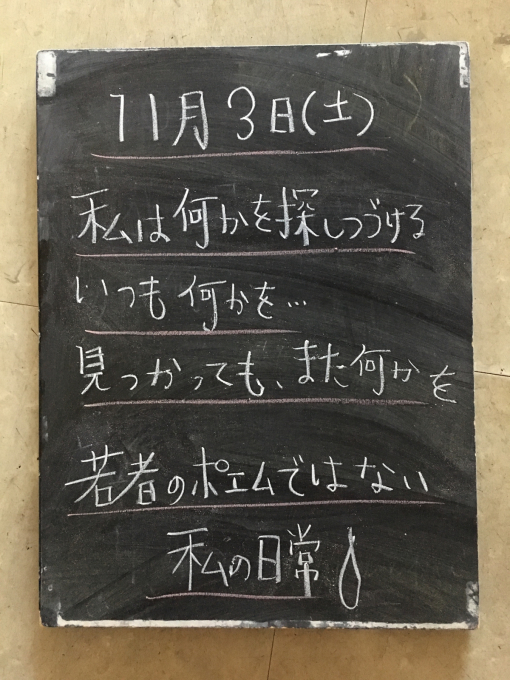 11月3日(土)
私は何かを探しつづける
いつも何かを…
見つかっても、また何かを
若者のポエムではない
私の日常